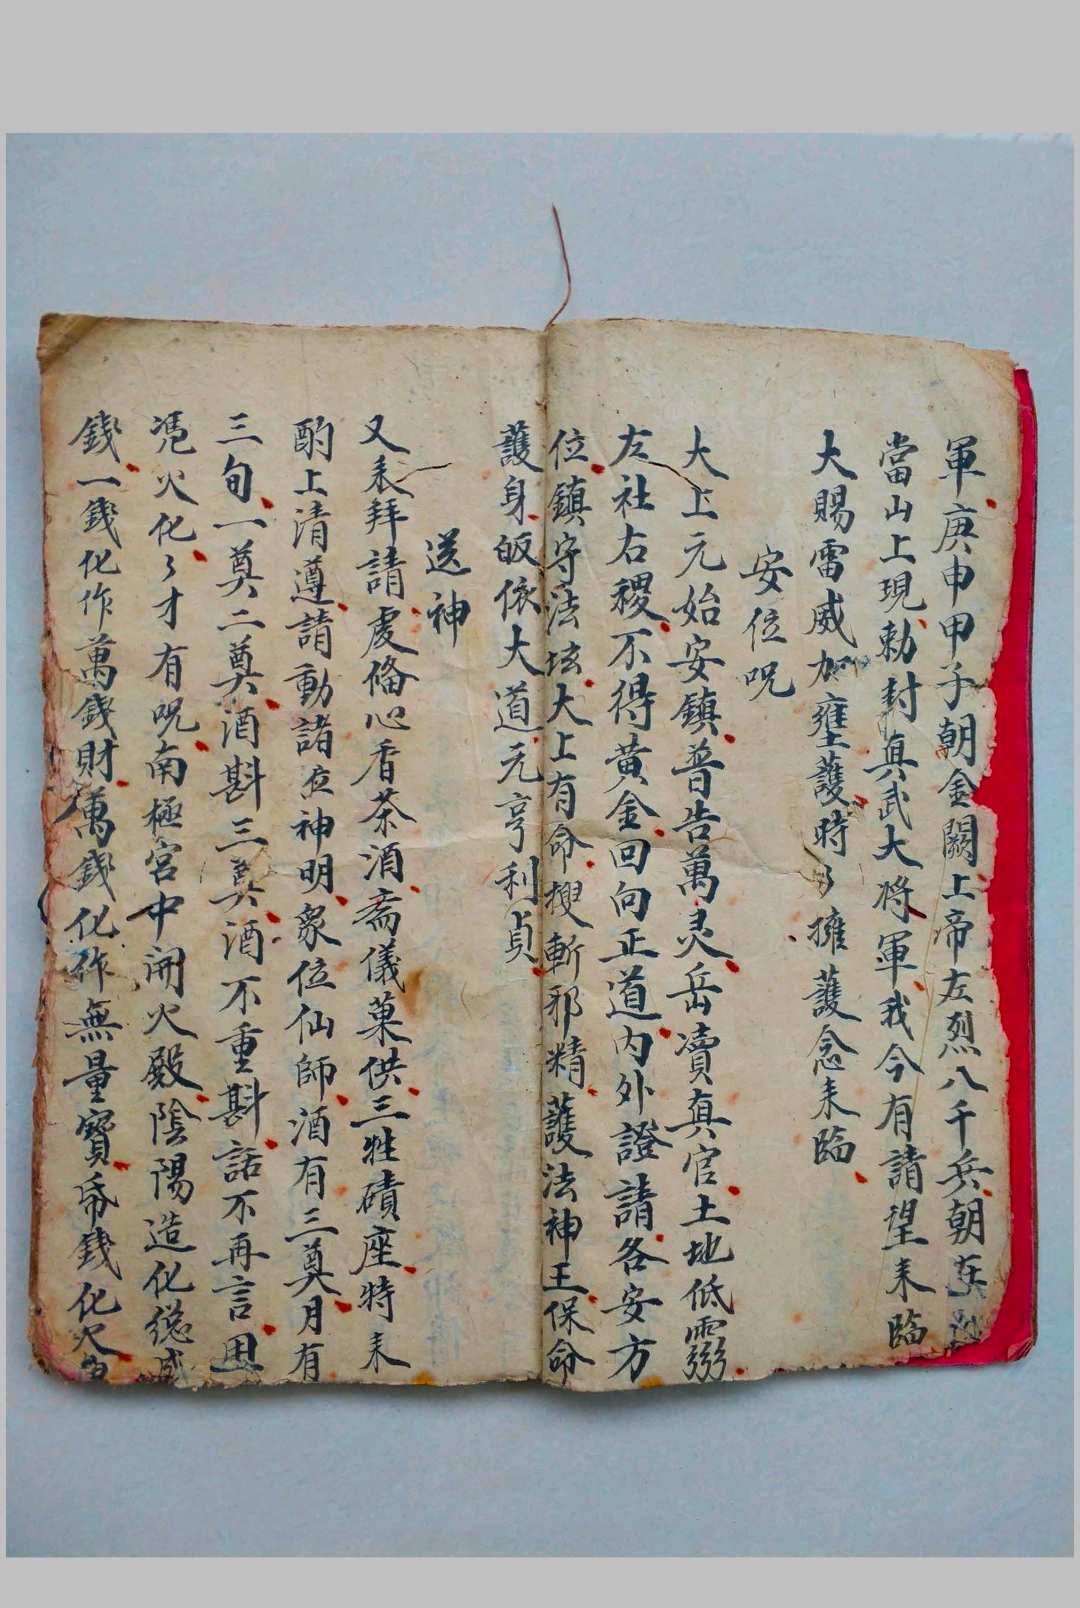 軍庚申甲子朝金闕上帝左烈八千兵朝在
當山上現勅封真武大将軍我今有請望来臨
大賜雷威加壅護時々擁護念来臨
安位呪
大上元始安鎮普告萬灵岳凟真官土地低靈
左社右稷不得黄金回向正道内外證請各安方
位鎮守法坛大上有命搜斬邪精護法神王保命
護身皈依大道元亨利貞
送神
又来拜請虔俻心香茶酒斋儀菓供三牲磧座特来
酌上清遵請動諸位神明衆位仙師酒有三奠月有
三旬一奠二奠酒斟三奠酒不重斟話不再言用
凴火化々才有呪南極宮中開火殿陰陽造化
錢一錢化作萬錢財萬錢化作無量寶帋錢化火